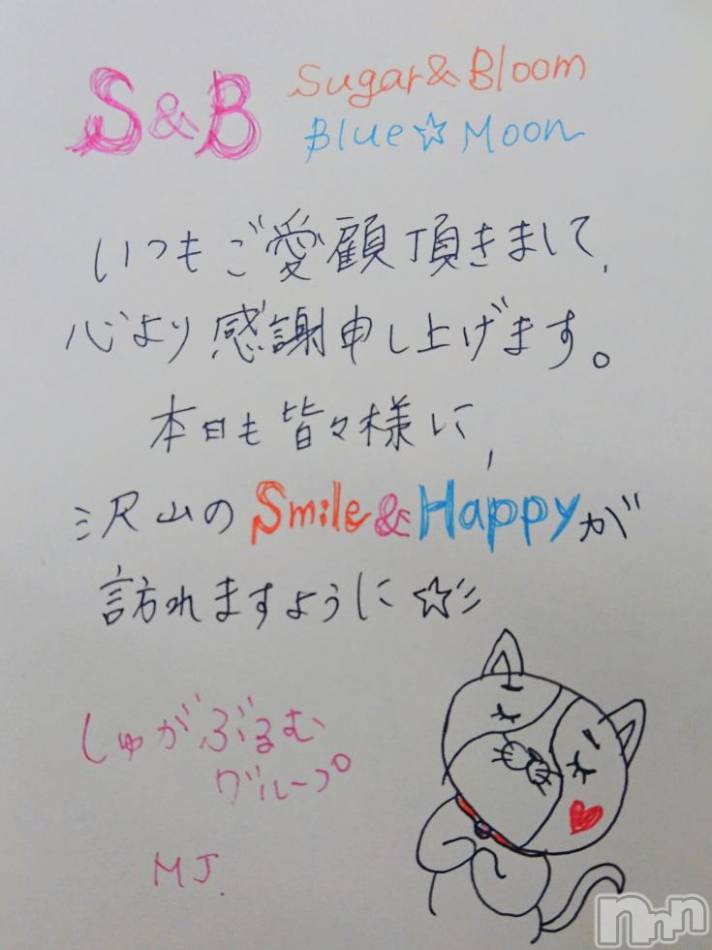 S&B
Sugar&Bloom
Blue☆Moon
いつもご愛顧頂きまして、
心より感謝申し上げます。
本日も皆々様に、
沢山のSmile&Happyが
訪れますように☆彡
しゅがぶるむ
グループ
MJ.
nnn